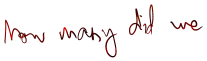 how many did we